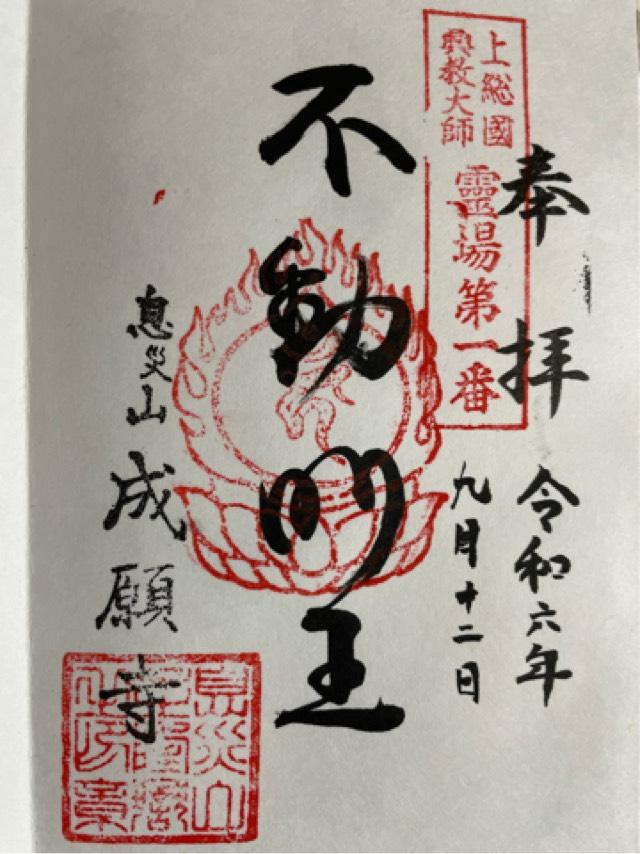 奉拝
令和六年
九月十二日
上総國
興教大師
靈場第一番
不動明王
息災山成願寺